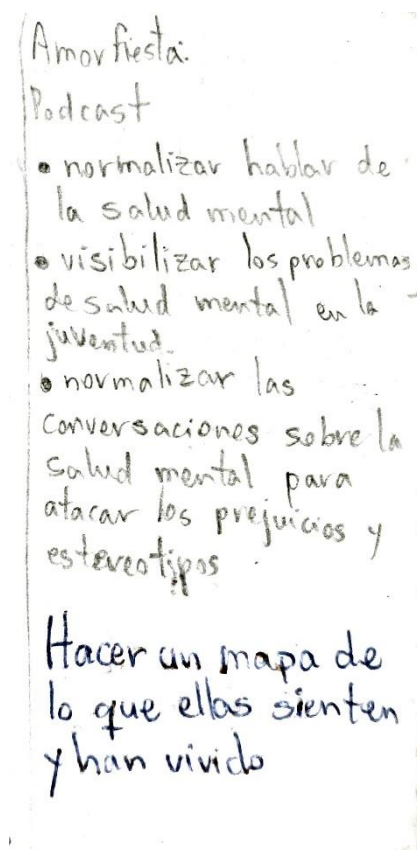 Amorfiesta.
Podcast
• normalizar hablar de
la salud mental
• visibilizar los problemas
de salud mental en la
juventud.
• normalizar las
conversaciones sobre la
salud mental para
atacar los prejuicios y
estereotipos
Hacer un mapa de
lo que ellas sienten
y han vivido